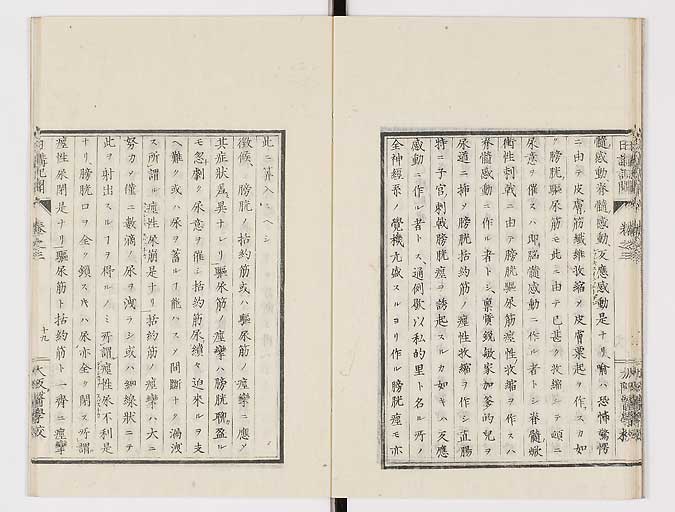 髓感動脊髓感動反應感動是ナリ喻ハ恐怖驚愕
ニ由テ皮膚筋纖維收縮〆皮膚粟起ヲ作スカ如
ク膀胱驅尿筋モ此ニ由テ已甚ク收縮シテ頻ニ
尿意ヲ催スハ即腦髓感動ニ作ル者トシ脊髓
衝性刺戟ニ由テ膀胱驅尿筋痙性收縮ヲ作スハ
脊髓感動ニ作ル者トシ稟質銳敏家加爹的兒ヲ
尿道ニ挿ヲ膀胱括約筋ノ痙性收縮ヲ作シ直腸
特ニ子宮刺戟膀胱痙ヲ誘起スルカ如キハ反應
感動ニ作ル者トス通例歇以私的里ト名ル所ノ
全神經系ノ覺機亢盛スルヨリ作ル膀胱痙モ亦
此ニ算入スヘシ
徵候、膀胱ノ括約筋或ハ驅尿筋ノ痙攣ニ應〆
其症狀爲異ナレリ驅尿筋ノ痙攣ハ膀胱聊盈ル
モ忽劇ク尿意ヲ催シ括約筋尿續々迫來ルヲ支
ヘ難ク或ハ尿ヲ蓄ルヿ能ハス〆間斷ナク淌洩
ス所謂ル痙性尿崩是ナリ括約筋ノ痙攣ハ大ニ
努力〆僅ニ數滴ノ尿ヲ洩ラシ或ハ細線狀ニテ
此ヲ射出スルヿヲ得ルノミ所謂痙性尿不利是
ナリ膀胱口ヲ全ク鎖スキハ尿亦全ク閉ス所謂
痙性尿閉是ナリ驅尿筋ト括約筋ト一齊ニ痙攣
日講記聞
卷之三
十九
大阪醫學校